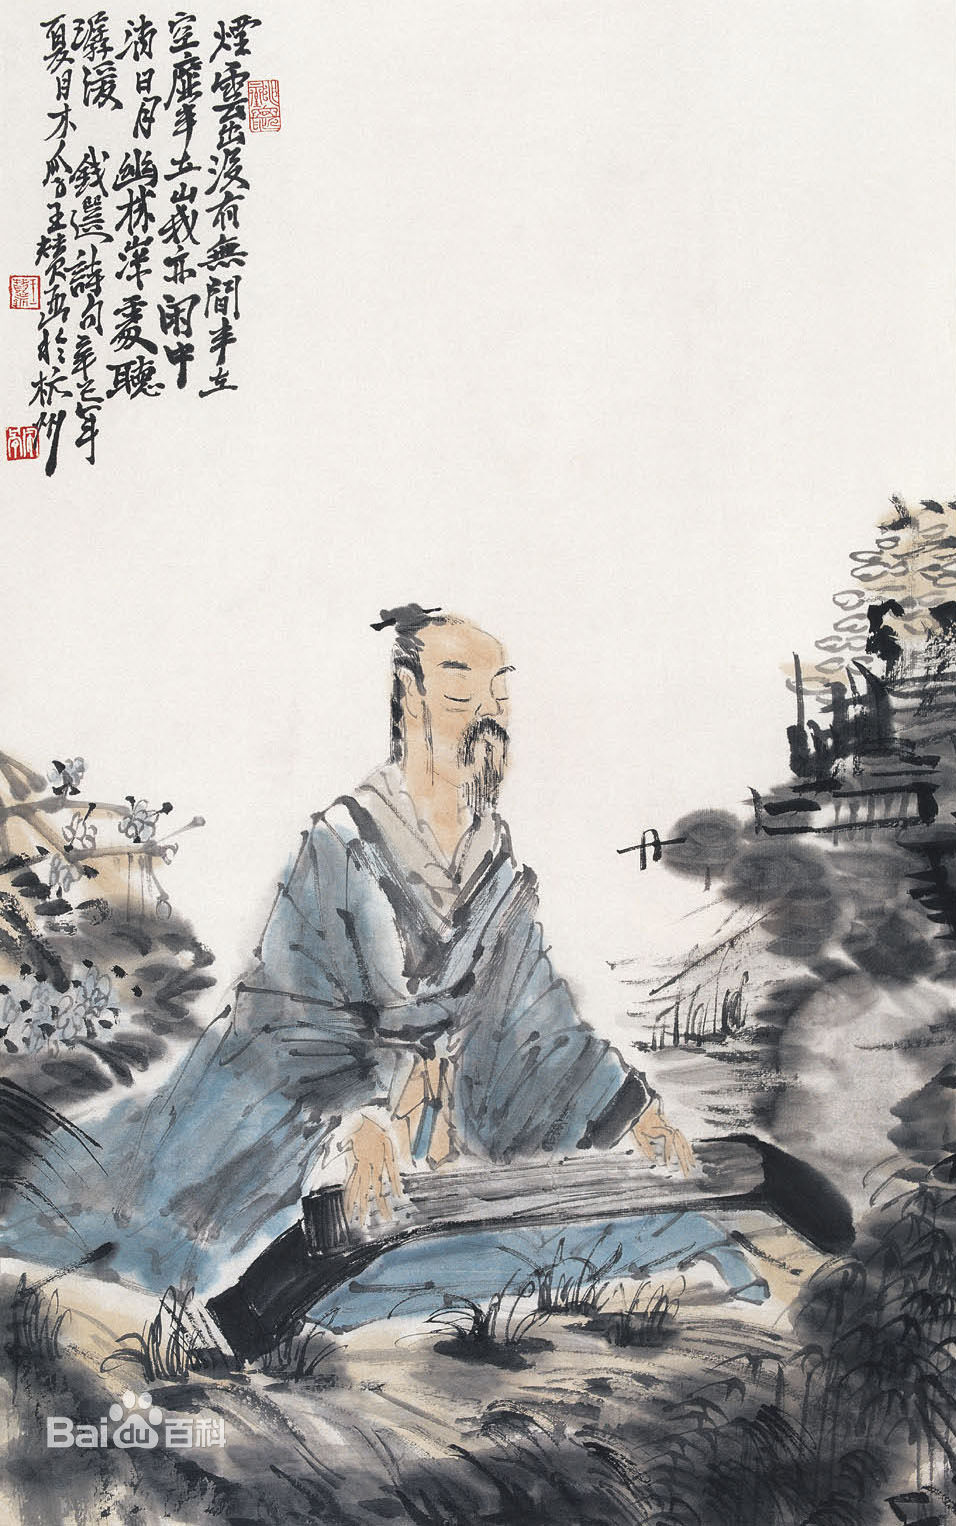 煙雲出沒有無間半在
空虛半在山我亦闲中
消日月幽林深處聽
潺湲 錢選詩句辛巳年
夏月木 王赞画於杭州
Bai du 百科